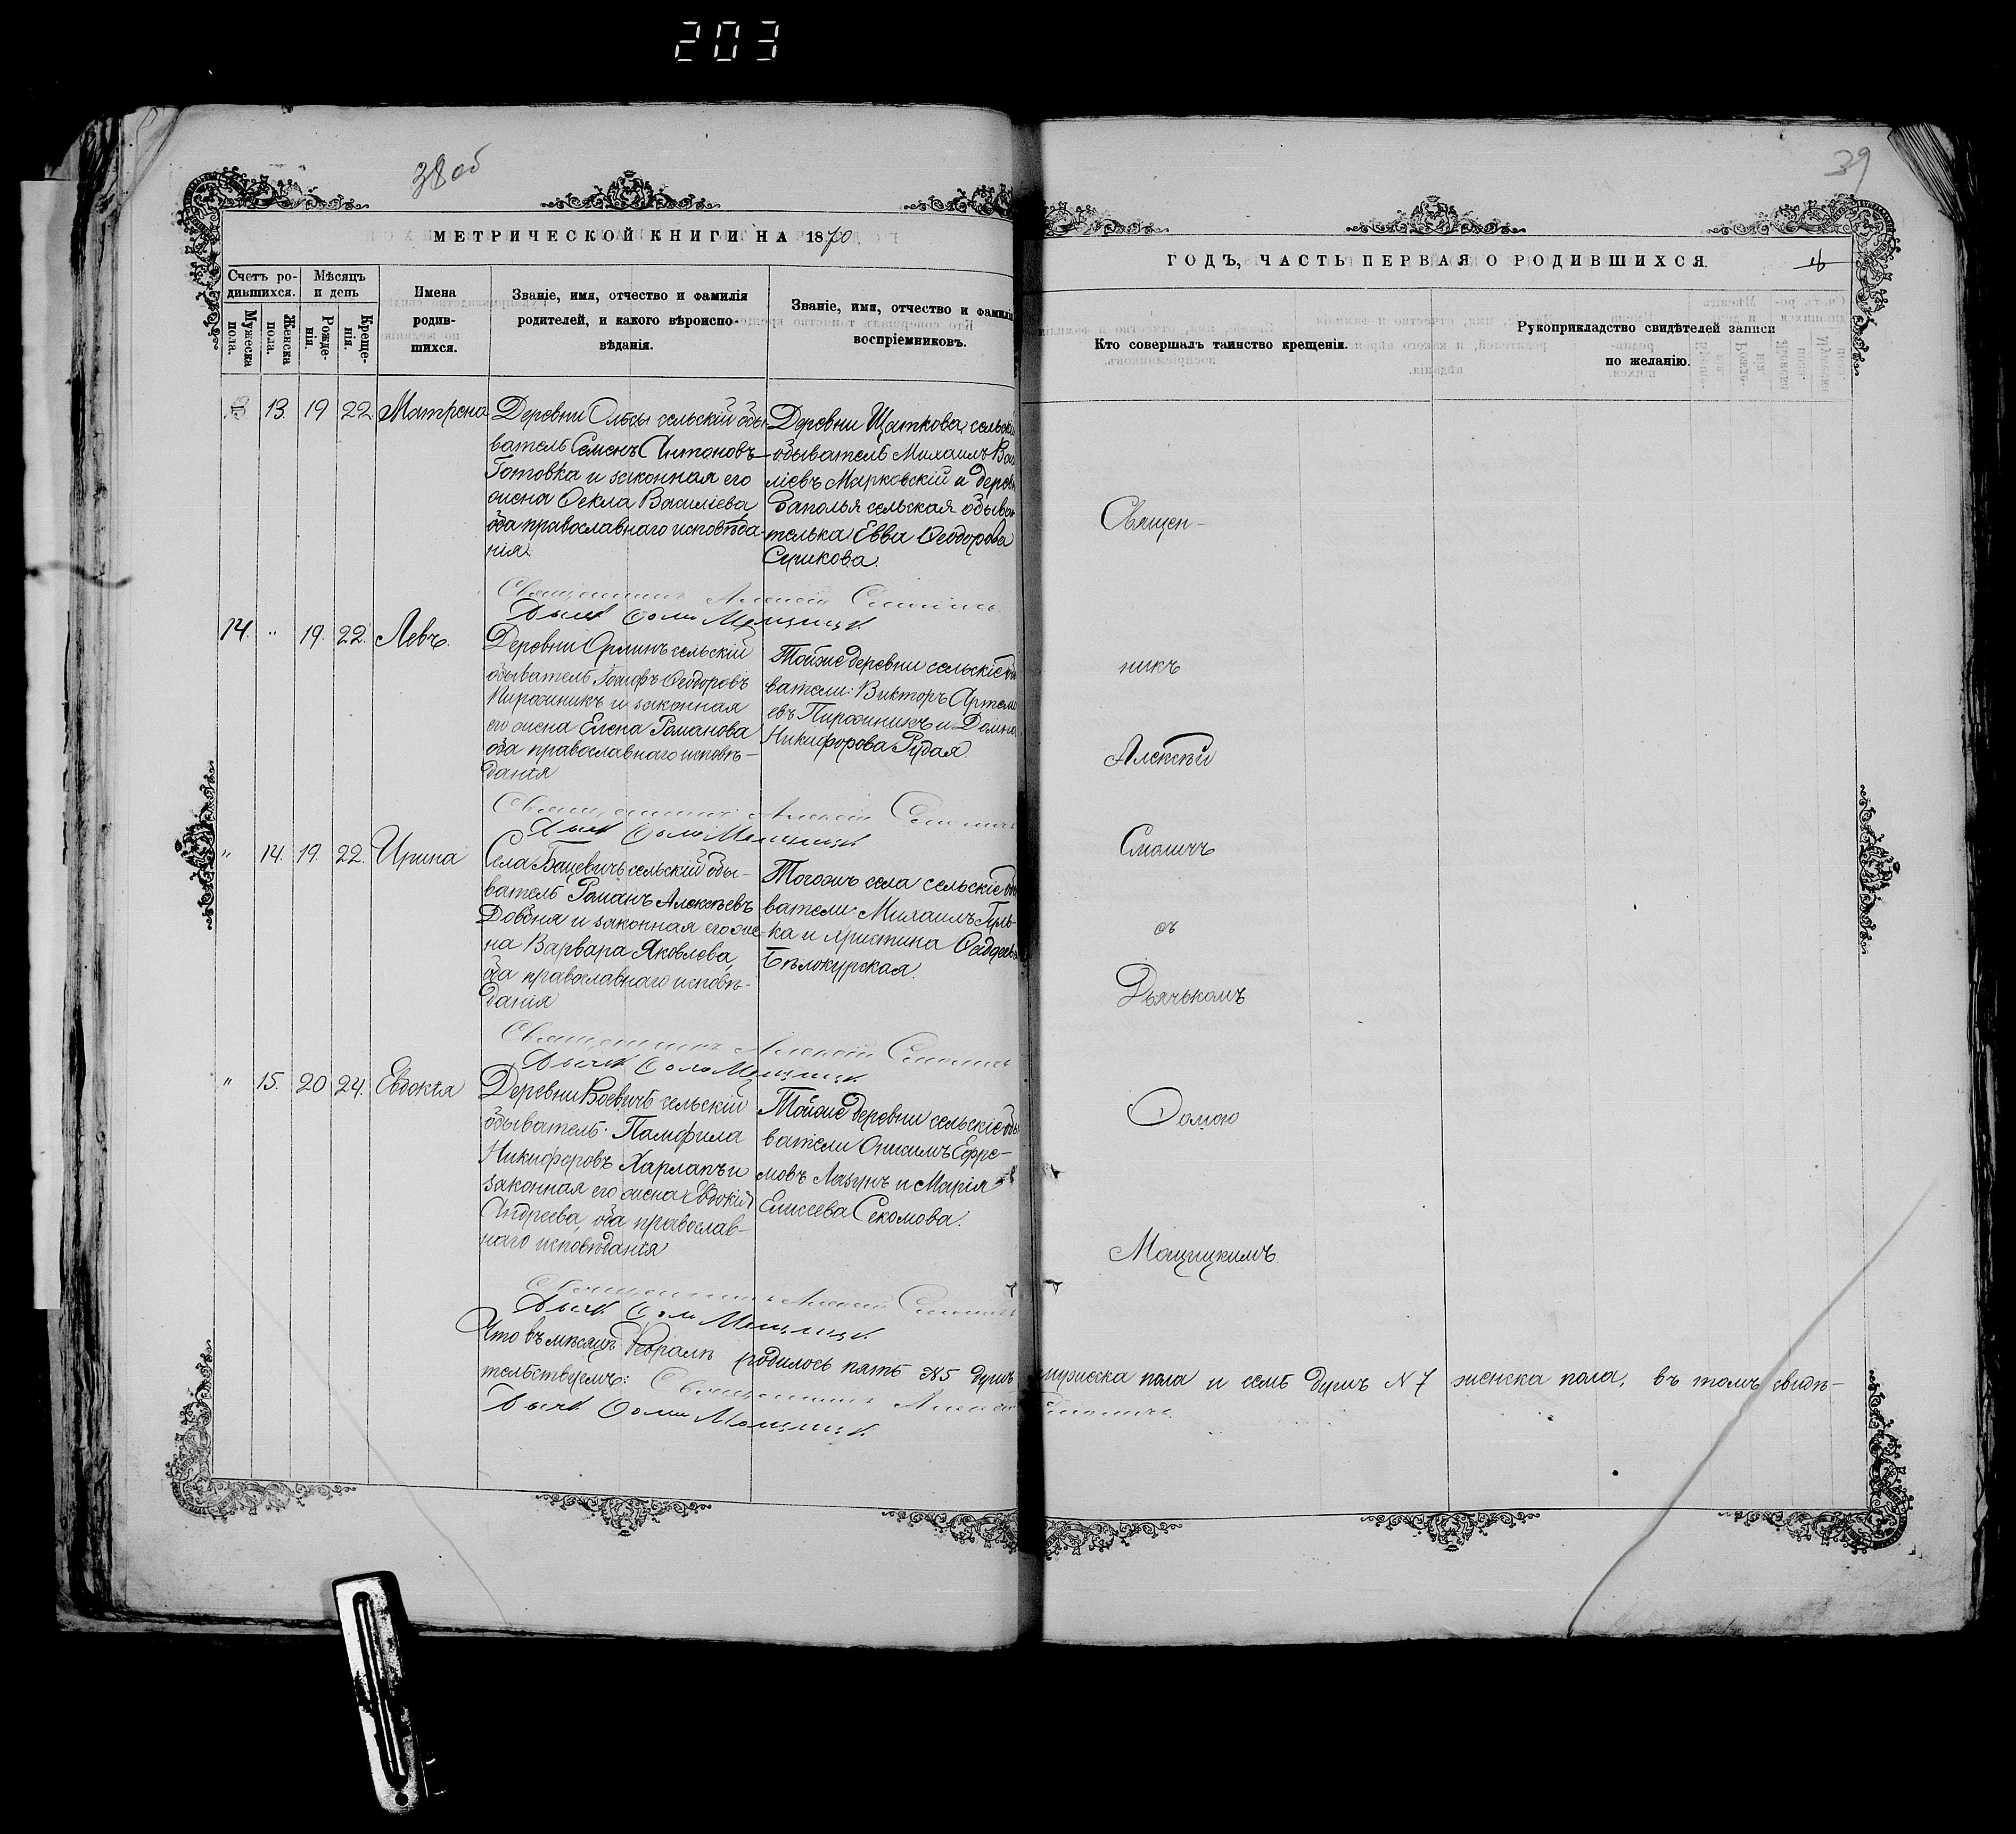 203
38 об
39
МЕТРИЧЕСКОЙ КНИГИ НА 1870
ГОДЪ, ЧАСТЬ ПЕРВАЯ О РОДИВШИХСЯ.
Счетъ ро-
дившихся.
Мужеска пола.
Женска пола.
Мѣсяцъ
и день
Рожде-
нія.
Креще-
нія.
Имена
родив-
шихся.
Званіе, имя, отчество и фамилія
родителей, и какого вѣроиспо-
вѣданія.
Званіе, имя, отчество и фамилі
воспріемниковъ.
Кто совершалъ таинство крещенія.
Рукоприкладство свидѣтелей записи
по желанію.
13. 19 22 Матрона
Деревни Ольсы сельскій обы
ватель Семенъ Антоновъ
Готовка и законная его
жена Ѳекла Василіева,
оба православнаго исповѣда-
нія.
Деревни Щаткова, сельскі
обыватель Михаилъ Васи
ліевъ Марковскій и дерев
Заполья сельская обыва
телька Евва Ѳеодорова
Священникъ Алексій Смоличъ
Дьяч. Ѳома Мощицк.
14. " 19. 22. Левъ.
Деревни Орлинъ сельскій
обыватель Іосифъ Ѳеодоровъ
Пирожникъ и законная
его жена Елена Романова
оба православнаго исповѣ-
данія
Тойже деревни сельскіе об
ватели: Викторъ Артемі
евъ Пирожникъ и Домна
Никифорова Рудая.
Священникъ Алексій Смоличъ
Дьяч. Ѳома Мощицк.
" 14. 19. 22. Ирина
Села Бацевичъ сельскій обы-
ватель Романъ Алексѣевъ
Довбня и законная его же-
на Варвара Яковлева,
оба православнаго исповѣ-
данія
Тогожъ села сельскіе об
ватели: Михаилъ Гуль-
ка и Христина
Бѣлокурская.
Священникъ Алексій Смоличъ
Дьяч. Ѳома Мощицк.
" 15. 20 24. Евдокія
Деревни Воевичъ сельскій
обыватель Памфила
Никифоровъ Харлапъ и
законная его жена Евдокія
Андреева, оба православ-
наго исповѣданія
Тойже деревни сельскіе об
ватели Онисимъ Ефре-
мовъ Лазунъ и Марія
Елисеева Секомова.
Священникъ Алексій Смоличъ
Дьяч. Ѳома Мощицк.
Священ-
никъ
Алексѣй
Смоличъ
съ
Дьячькомъ
Ѳомою
Мощицкимъ.
Что въ мѣсяцѣ Февралѣ родилось пять №5 душъ мужеска пола и семь душъ №7 женска пола, въ томъ свидѣ-
тельствуемъ: Священникъ Алексій Смоличъ
Дьяч. Ѳома Мощицк.